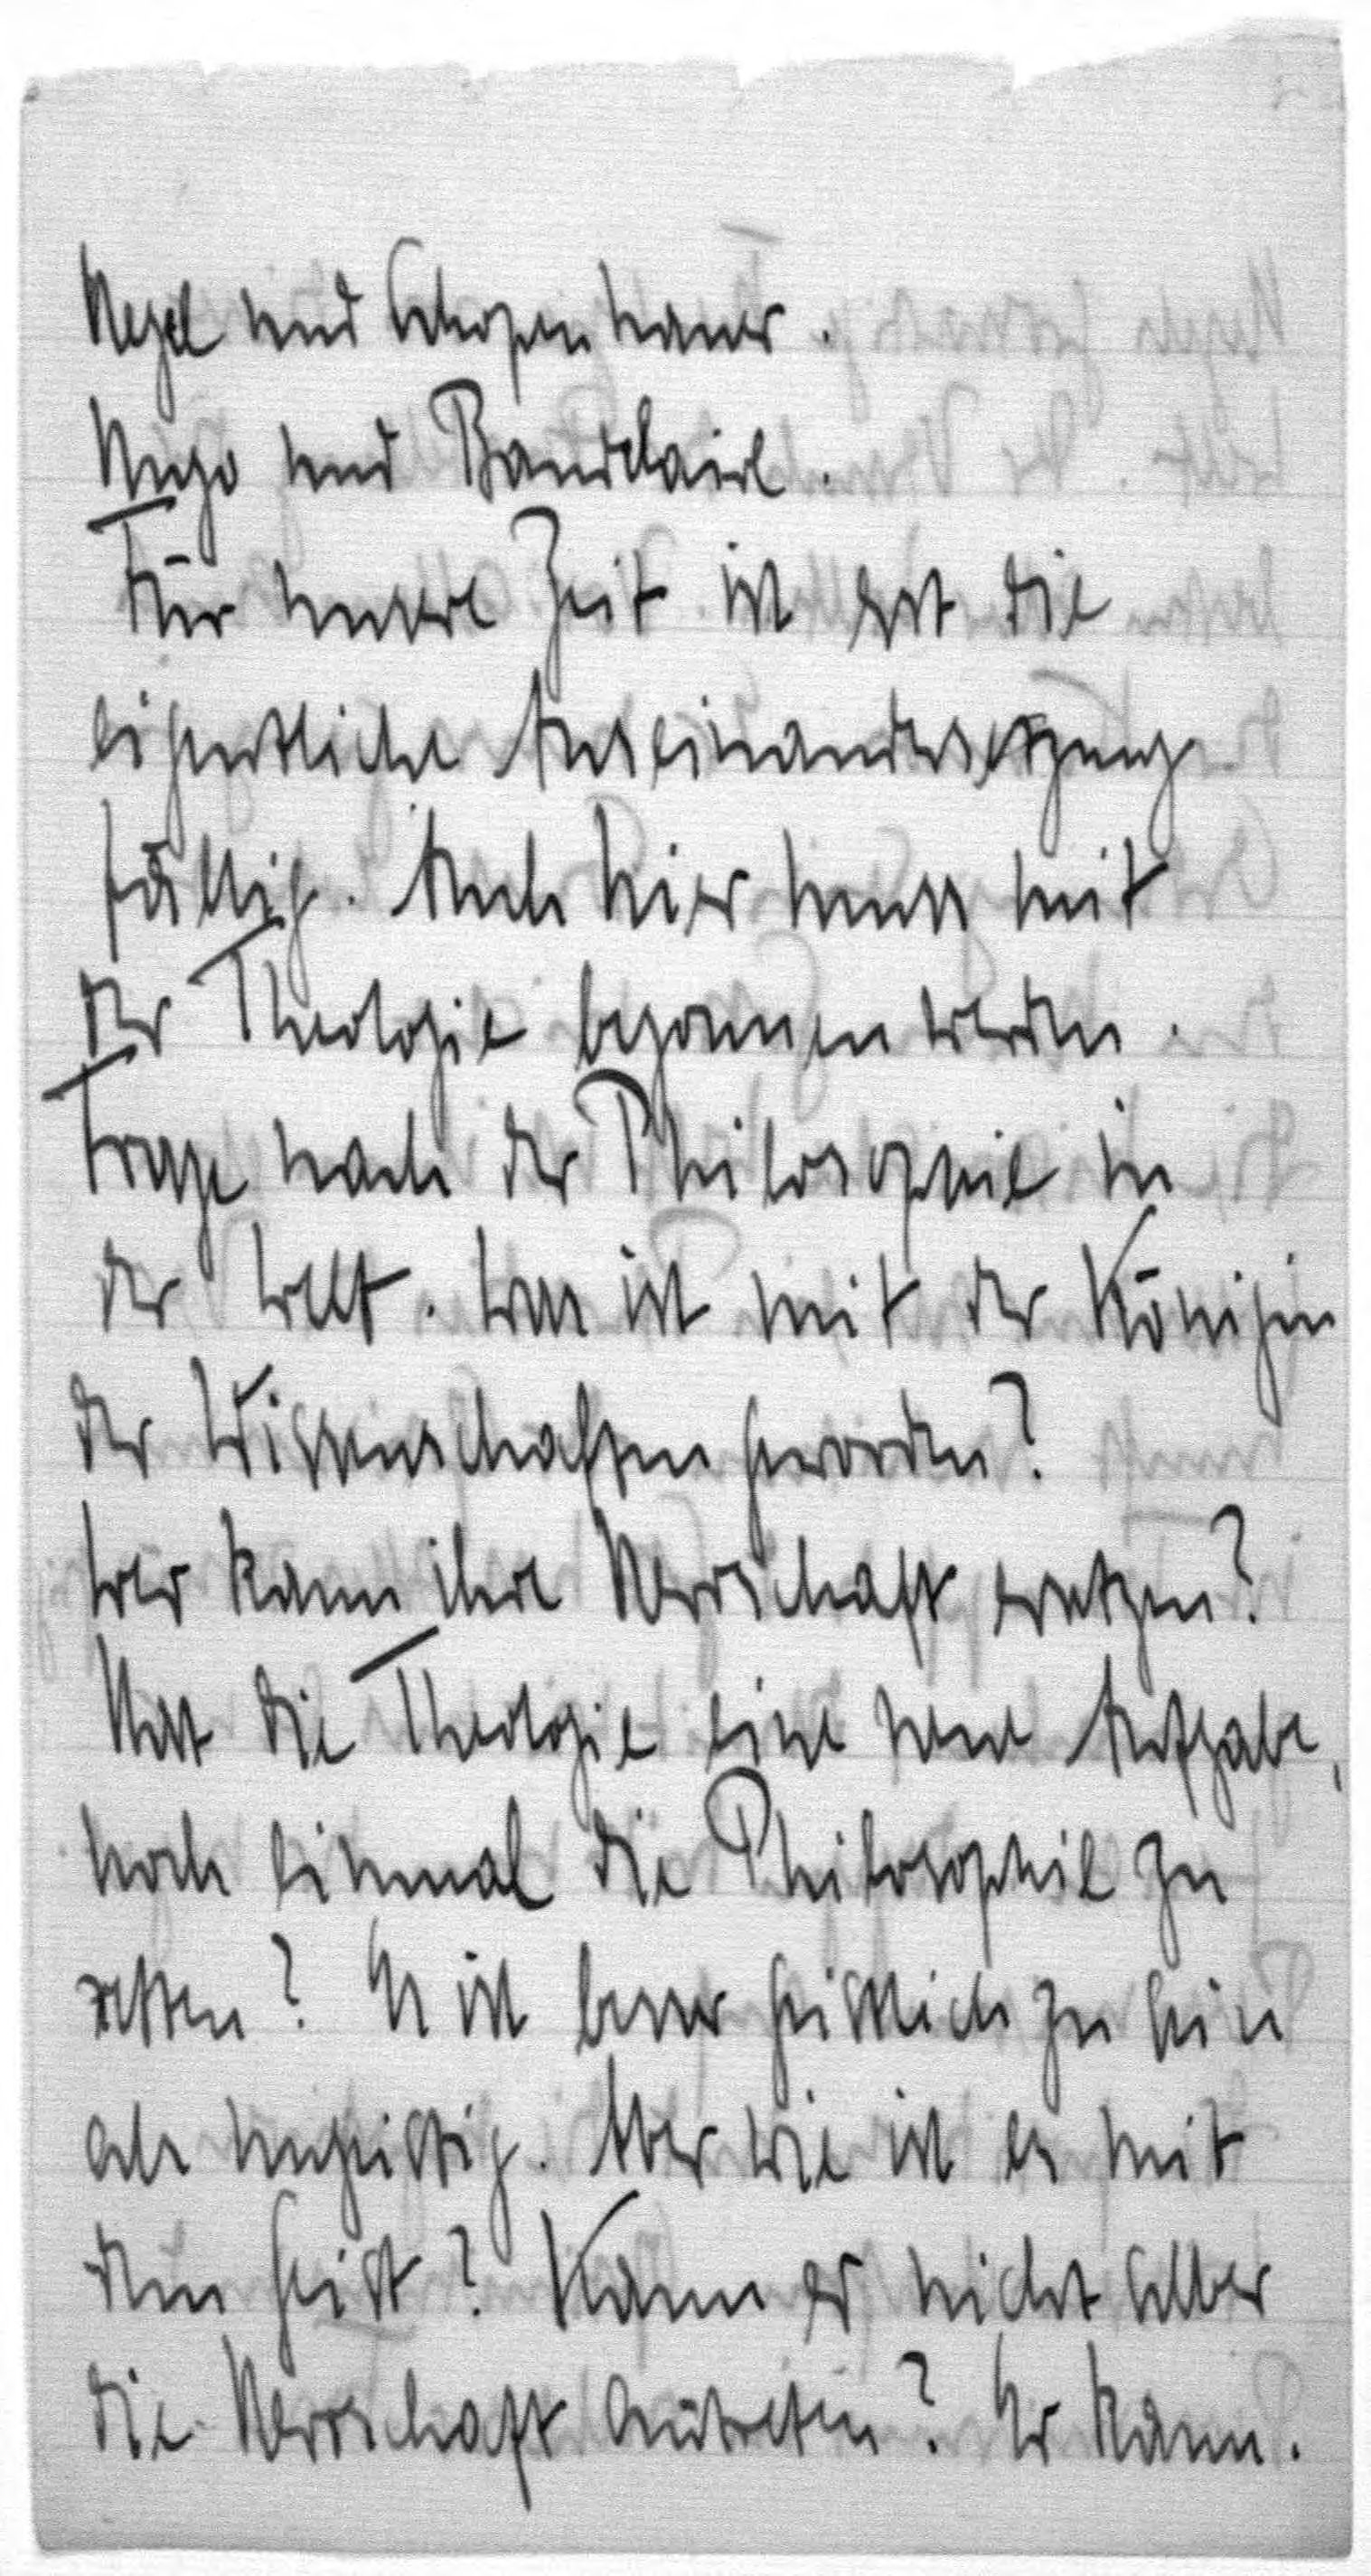 Hegel und Schopenhauer.
Hugo und Baudelaire.
Für unsere Zeit ist erst die
eigentliche Auseinandersetzung
fällig. Auch hier muss mit
der Theologie begonnen werden.
Frage nach der Philosophie in
der Welt. Was ist mit der Königin
der Wissenschaften geworden?
Wer kann ihre Herrschaft ersetzen?
Hat die Theologie eine neue Aufgabe,
noch einmal die Philosophie zu
retten? Es ist besser geistlich zu sein
als ungeistig. Aber wie ist es mit
dem Geist? Kann er nicht selber
die Herrschaft antreten? Er kann.